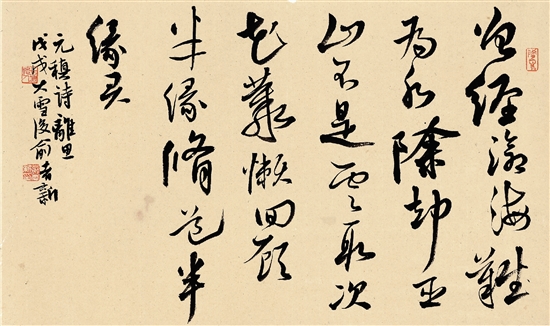 曾經滄海難
為水除却巫
山不是雲取次
花叢懶回顧
半緣脩道半
緣君
元稹詩離思
戊戌大雪後俞